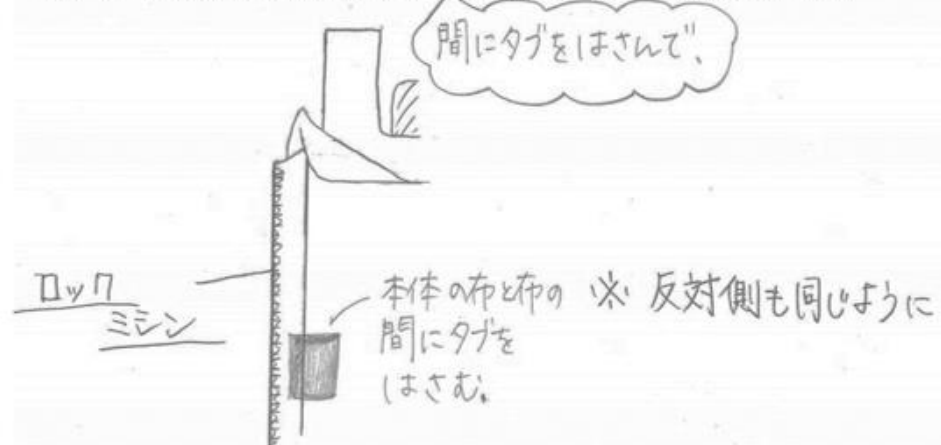 間にタブをはさんで、
ロック
ミシン
本体の布と布の
間にタブを
はさむ。
※ 反対側も同じように